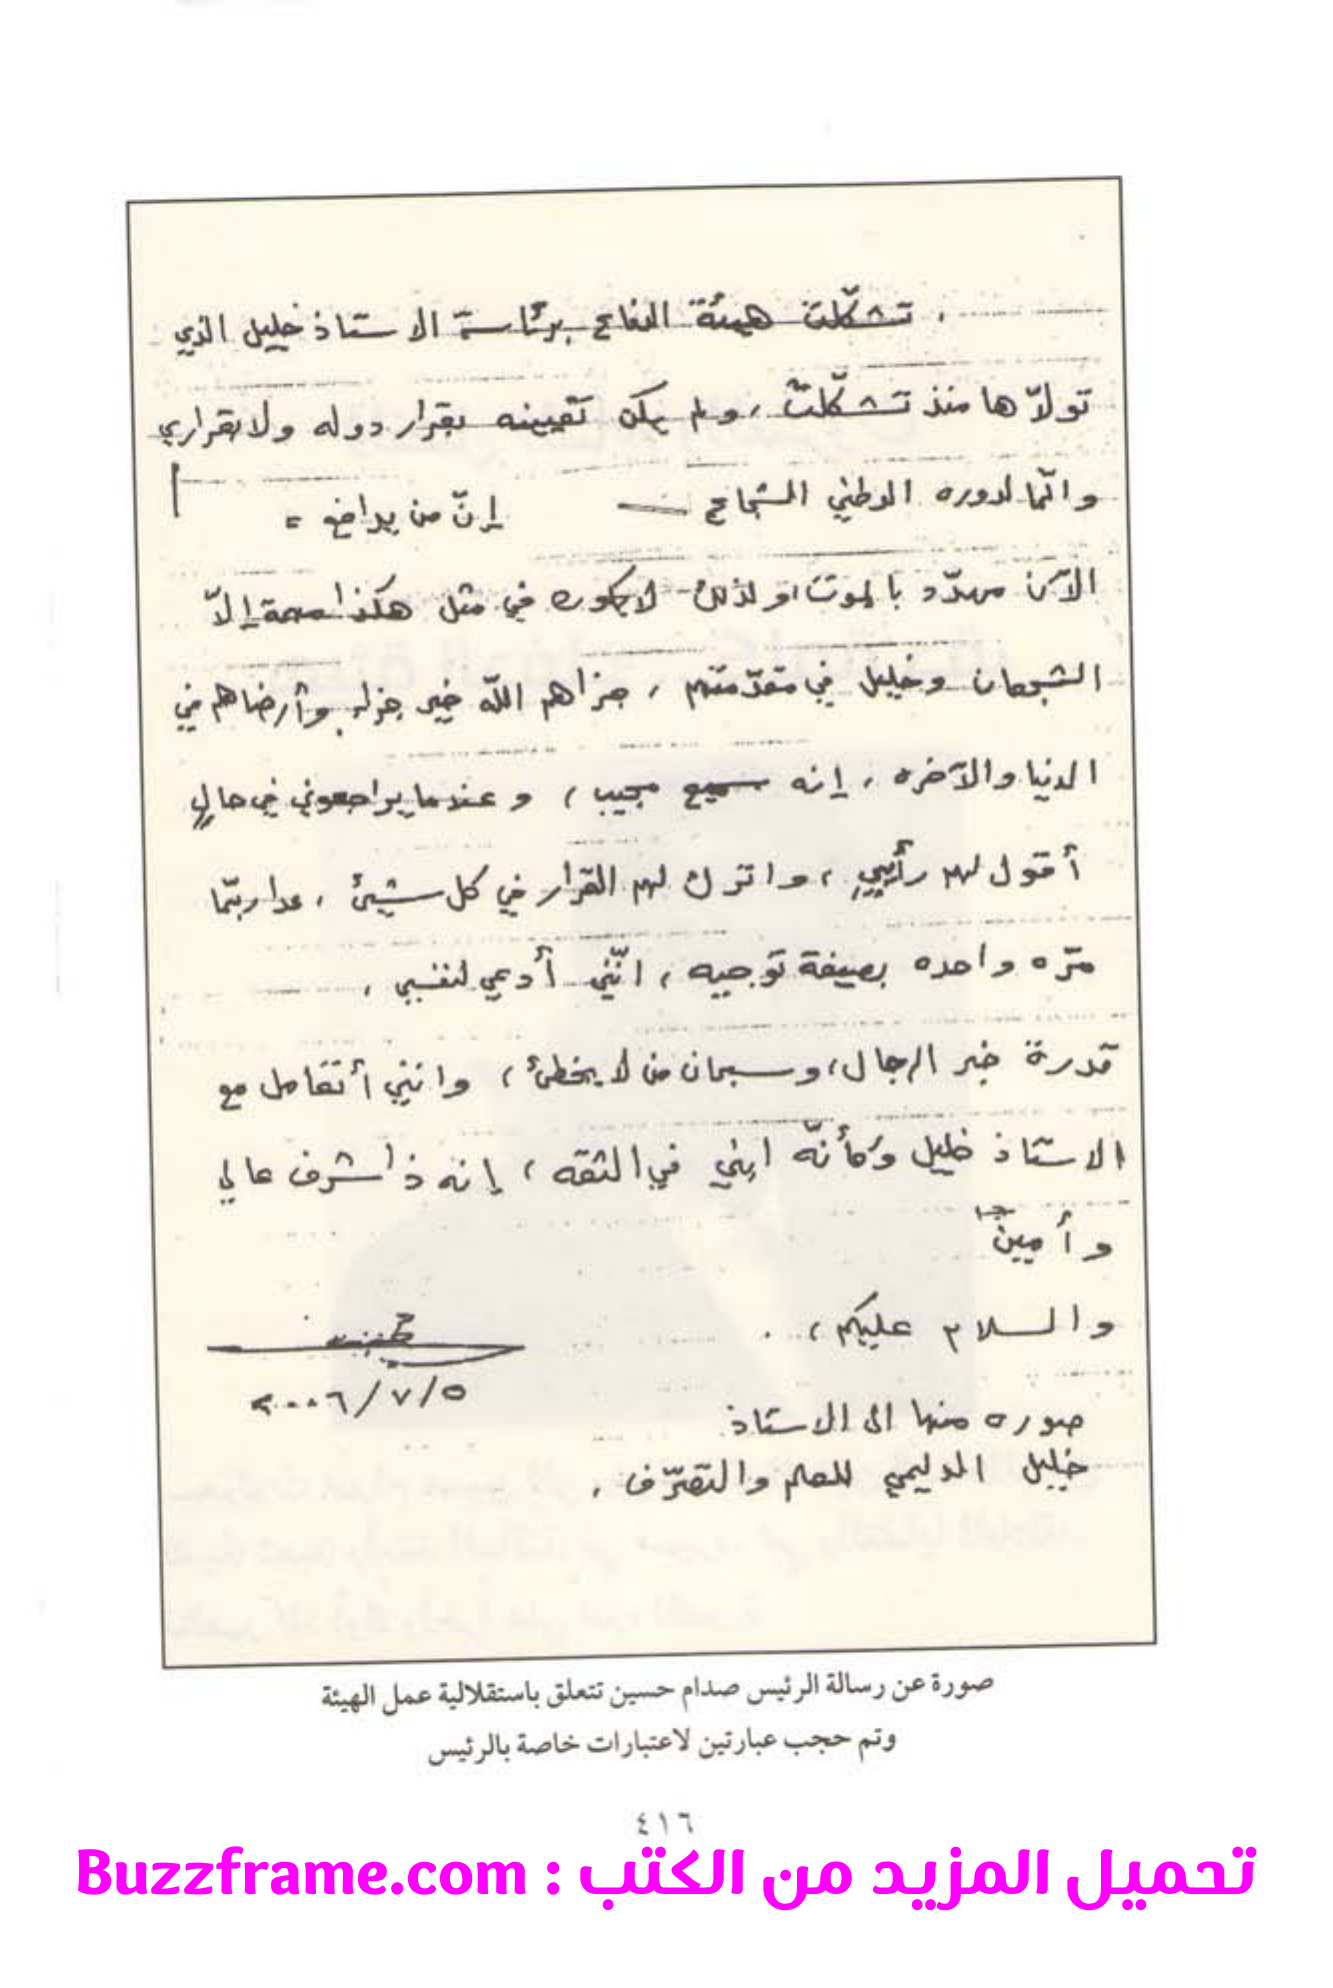 . تشكّلت هيئة الدفاع برئاسة الاستاذ خليل الذي
تولاّها منذ تشكّلت ، ولم يكن تعيينه بقرار دوله ولا بقراري
وانّما لدوره الوطني الشجاع — إنّ من يدافع =
الآن مهدّد بالموت ولذلك لا يكون في مثل هكذا مهمة إلاّ
الشجعان وخليل في مقدّمتهم ، جزاهم اللّه خير جزاء وأرضاهم في
الدنيا والآخره ، إنه سميع مجيب ، وعندما يراجعوني في حالٍ
أقول لهم رأيي ، واترك لهم القرار في كل شيئ ، عدا ربّما
مرّه واحده بصيغة توجيه ، انّني أدعي لنفسي ،
قدرة خبر الرجال ، وسبحان من لا يخطئ ، وانني أتعامل مع
الاستاذ خليل وكأنّه ابني في الثقه ، إنه ذا شرف عالي
وأمين
والسلام عليكم ، .
٢٠٠٦/٧/٥
صوره منها الى الاستاذ
خليل الدليمي للعلم والتصرّف .
صورة عن رسالة الرئيس صدام حسين تتعلق باستقلالية عمل الهيئة
وتم حجب عبارتين لاعتبارات خاصة بالرئيس
٤١٦
تحميل المزيد من الكتب : Buzzframe.com